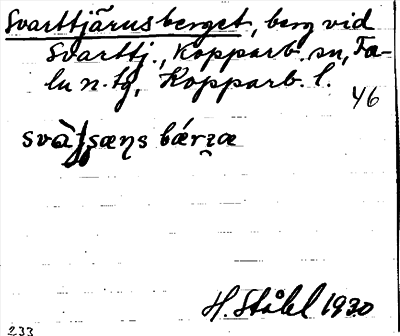 Svarttjärusberget, berg vid
Svarttj., Kopparb. sn, Fa-
lu n. tg, Kopparb. l.
46
bǽrʒæ
H. Ståhl 1930
233